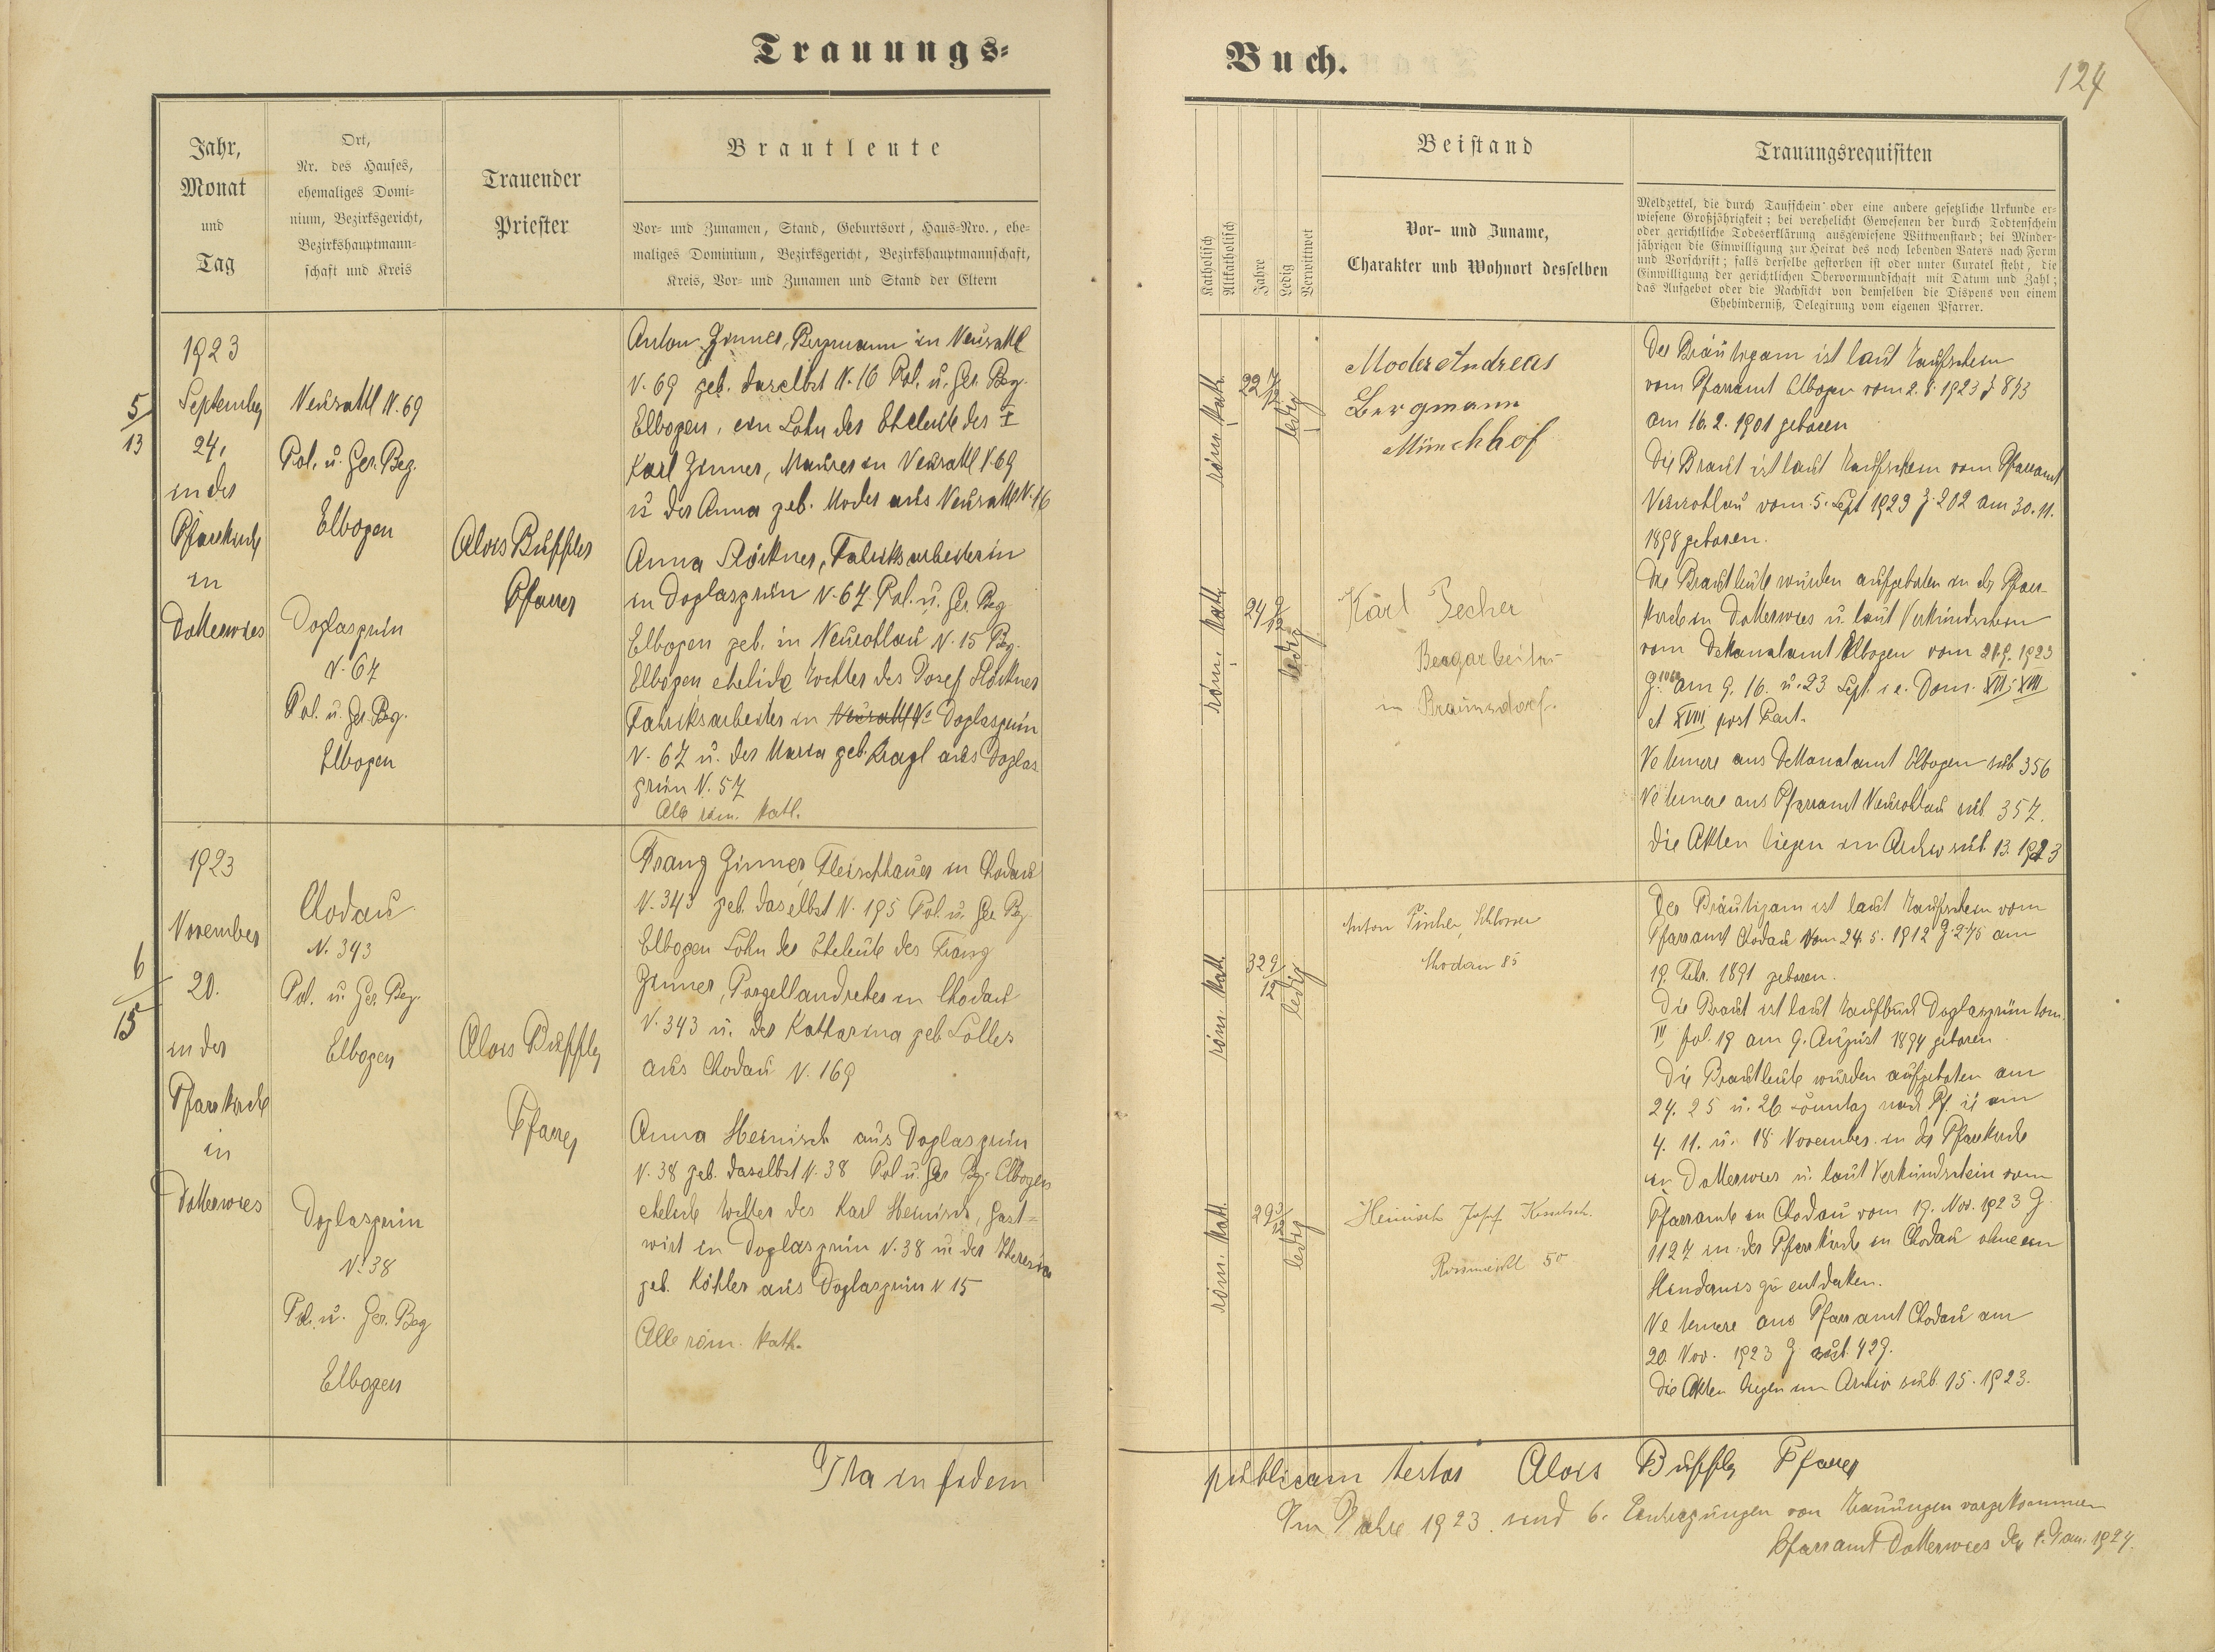 Trauungs-
Buch.
124
Jahr,
Monat
und
Tag
Ort,
Nr. des Hauses,
ehemaliges Domi-
nium, Bezirksgericht,
Bezirkshauptmann-
schaft und Kreis
Trauender
Priester
Brautleute
Vor- und Zunamen, Stand, Geburtsort, Haus-Nro., ehe-
maliges Dominium, Bezirksgericht, Bezirkshauptmannschaft,
Kreis, Vor- und Zunamen und Stand der Eltern
Katholisch
Altkatholisch
Jahre
Ledig
Verwittwet
Beistand
Vor- und Zuname,
Charakter und Wohnort desselben
Trauungsrequisiten
Meldzettel, die durch Taufschein oder eine andere gesetzliche Urkunde er-
wiesene Großjährigkeit; bei verehelicht Gewesenen der durch Todtenschein
oder gerichtliche Todeserklärung ausgewiesene Wittwenstand; bei Minder-
jährigen die Einwilligung zur Heirat des noch lebenden Vaters nach Form
und Vorschrift; falls derselbe gestorben ist oder unter Curatel steht, die
Einwilligung der gerichtlichen Obervormundschaft mit Datum und Zahl;
das Aufgebot oder die Nachsicht von demselben die Dispens von einem
Ehehinderniß, Delegirung vom eigenen Pfarrer.
5/13
1923
September
24.
in der
Pfarrkirche
in
Dotterwies
Neusattl N. 69
Pol. u. Ger. Bez.
Elbogen
Doglasgrün
N. 67
Pol. u. Ger. Bez.
Elbogen
Alois Buffler
Pfarrer
Anton Zinner, Bergmann in Neusattl
N. 69 geb. daselbst N. 16 Pol. u. Ger. Bez.
Elbogen, ein Sohn der Eheleute des
Karl Zinner, Maurer in Neusattl N. 69
u der Anna geb. Moder aus Neusattl N. 16
Anna Plöckner, Fabriksarbeiterin
in Doglasgrün N. 67. Pol. u. Ger. Bez
Elbogen geb. in Neurohlau N. 15 Bez.
Elbogen eheliche Tochter des Josef Plöckner
Fabriksarbeiter in Neusattl N. Doglasgrün
N. 67 u. der Maria geb. Kragl aus Doglas
grün N. 57
Alle röm. kath.
röm. kath.
22 7/12
ledig
röm. kath.
24 9/12
ledig
Moder Andreas
Bergmann
Münchhof
Karl Pecher
Bergarbeiter
in Braunsdorf.
Der Bräutigam ist laut Taufschein
vom Pfarramt Elbogen vom 2. 8. 1923 Z 893
am 16. 2. 1901 geboren
Die Braut ist laut Taufschein vom Pfarramt
Neurohlau vom 5. Sept 1923 Z. 202 am 30. 11.
1898 geboren.
Die Brautleute wurden aufgeboten in der Pfarr-
kirche in Dotterwies u. laut Verkündschein
vom Dekanalamt Elbogen vom 21. 9. 1923
Z. 1060 am 9. 16. u. 23 Sept. i. e. Dom. XVI, XVII
et XVIII post Pent.
Ne temere aus Dekanalamt Elbogen sub 356
Ne temere aus Pfarramt Neurohlau sub. 357.
Die Akten liegen im Archiv sub. 13. 1923
6/15
1923
November
20.
in der
Pfarrkirche
in
Dotterwies
Chodau
N. 343
Pol. u. Ger. Bez.
Elbogen
Doglasgrün
N. 38
Pol. u. Ger. Bez
Elbogen
Alois Buffler
Pfarrer
Franz Zinner, Fleischhauer in Chodau
N. 343 geb. daselbst N. 195 Pol. u. Ger. Bez.
Elbogen Sohn der Eheleute des Franz
Zinner, Porzellandreher in Chodau
N. 343 u. der Katharina geb. Lolles
aus Chodau N. 169
Anna Heinisch aus Doglasgrün
N. 38 geb. daselbst N. 38 Pol u. Ger Bez. Elbogen
eheliche Tochter des Karl Heinisch, Gast=
wirt in Doglasgrün N. 38 u. der Theresia
geb. Köhler aus Doglasgrün N 15
Alle röm. kath.
röm. kath.
32 9/12
ledig
röm. kath.
29 3/12
ledig
Anton Fischer, Schlosser
Chodau 85
Heinisch Josef
50
Der Bräutigam ist laut Taufschein vom
Pfarramt Chodau vom 24. 5. 1912 Z. 275 am
19. Febr. 1891 geboren.
Die Braut ist laut Taufbuch Doglasgrün tom.
IV fol. 19 am 9. August 1894 geboren.
Die Brautleute wurden aufgeboten am
24. 25 u. 26 Sonntag nach Pf. i. e. am
4. 11. u. 18 November in der Pfarrkirche
in Dotterwies u. laut Verkündschein vom
Pfarramte in Chodau vom 19. Nov. 1923 Z.
1127 in der Pfarrkirche in Chodau ohne ein
Hindernis zu entdecken.
Ne temere aus Pfarramt Chodau am
20. Nov. 1923 Z sub. 429.
Die Akten liegen im Archiv sub. 15. 1923.
Ita in fidem
publicam testor Alois Buffler Pfarrer
Im Jahre 1923 sind 6. Eintragungen von Trauungen vorgekommen
Pfarramt Dotterwies den 1. Jan. 1924.